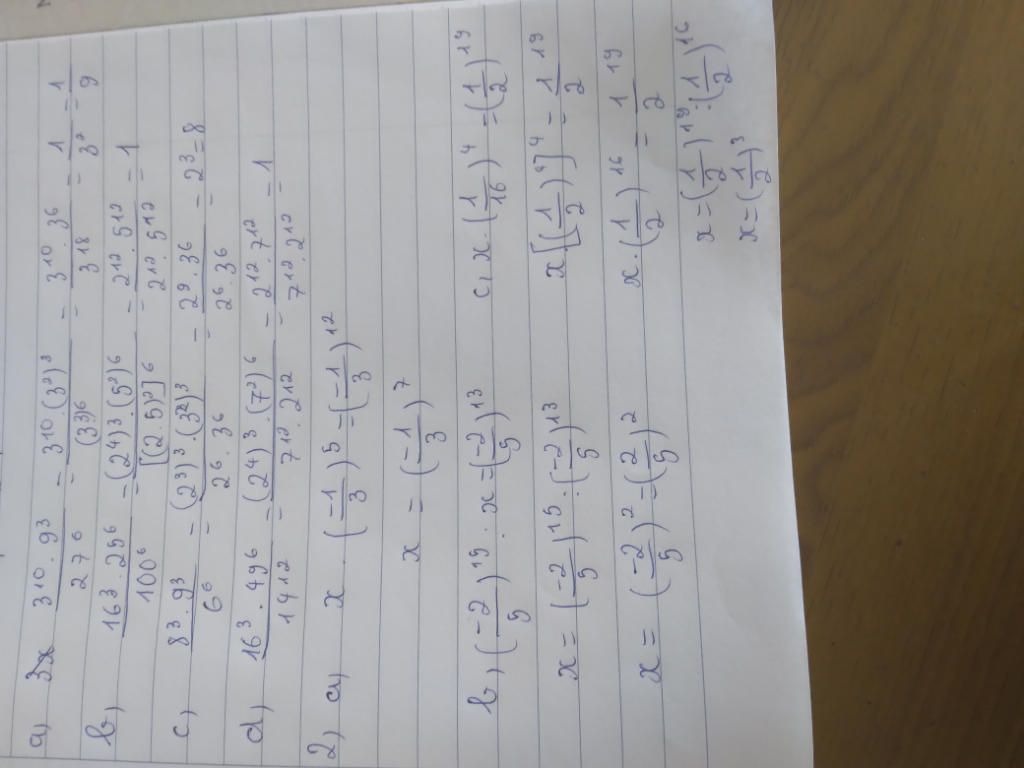 a) 3x 3^10 . 9^3 / 27^6 = 3^10 . (3^2)^3 / (3^3)^6 = 3^10 . 3^6 / 3^18 = 1 / 3^2 = 1 / 9
b) 16^3 . 25^6 / 100^6 = (2^4)^3 . (5^2)^6 / [(2 . 5)^2]^6 = 2^12 . 5^12 / 2^12 . 5^12 = 1
c) 8^3 . 9^3 / 6^6 = (2^3)^3 . (3^2)^3 / 2^6 . 3^6 = 2^9 . 3^6 / 2^6 . 3^6 = 2^3 = 8
d) 16^3 . 49^6 / 14^12 = (2^4)^3 . (7^2)^6 / 7^12 . 2^12 = 2^12 . 7^12 / 7^12 . 2^12 = 1
2) a) x : (-1/3)^5 = (-1/3)^12
x = (-1/3)^7
b, (-2/5)^15 : x = (-2/5)^13
x = (-2/5)^15 : (-2/5)^13
x = (-2/5)^2 = (2/5)^2
c, x . (1/16)^4 = (1/2)^19
x [(1/2)^4]^4 = 1/2^19
x . (1/2)^16 = 1/2^19
x = (1/2)^19 : (1/2)^16
x = (1/2)^3